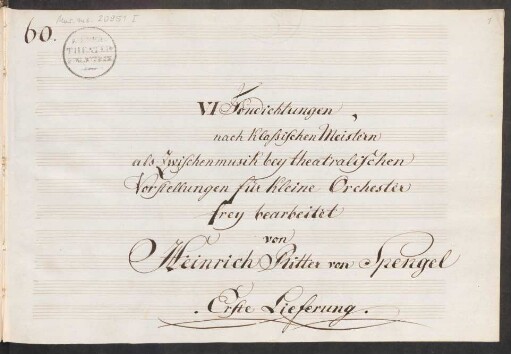 60.
THEATER
VI Tondichtungen
nach klaßischen Meistern
als Zwischenmusik bey theatralischen
Vorstellungen für kleine Orchester
frey bearbeitet
von
Heinrich Ritter von Spengel
. Erste Lieferung .